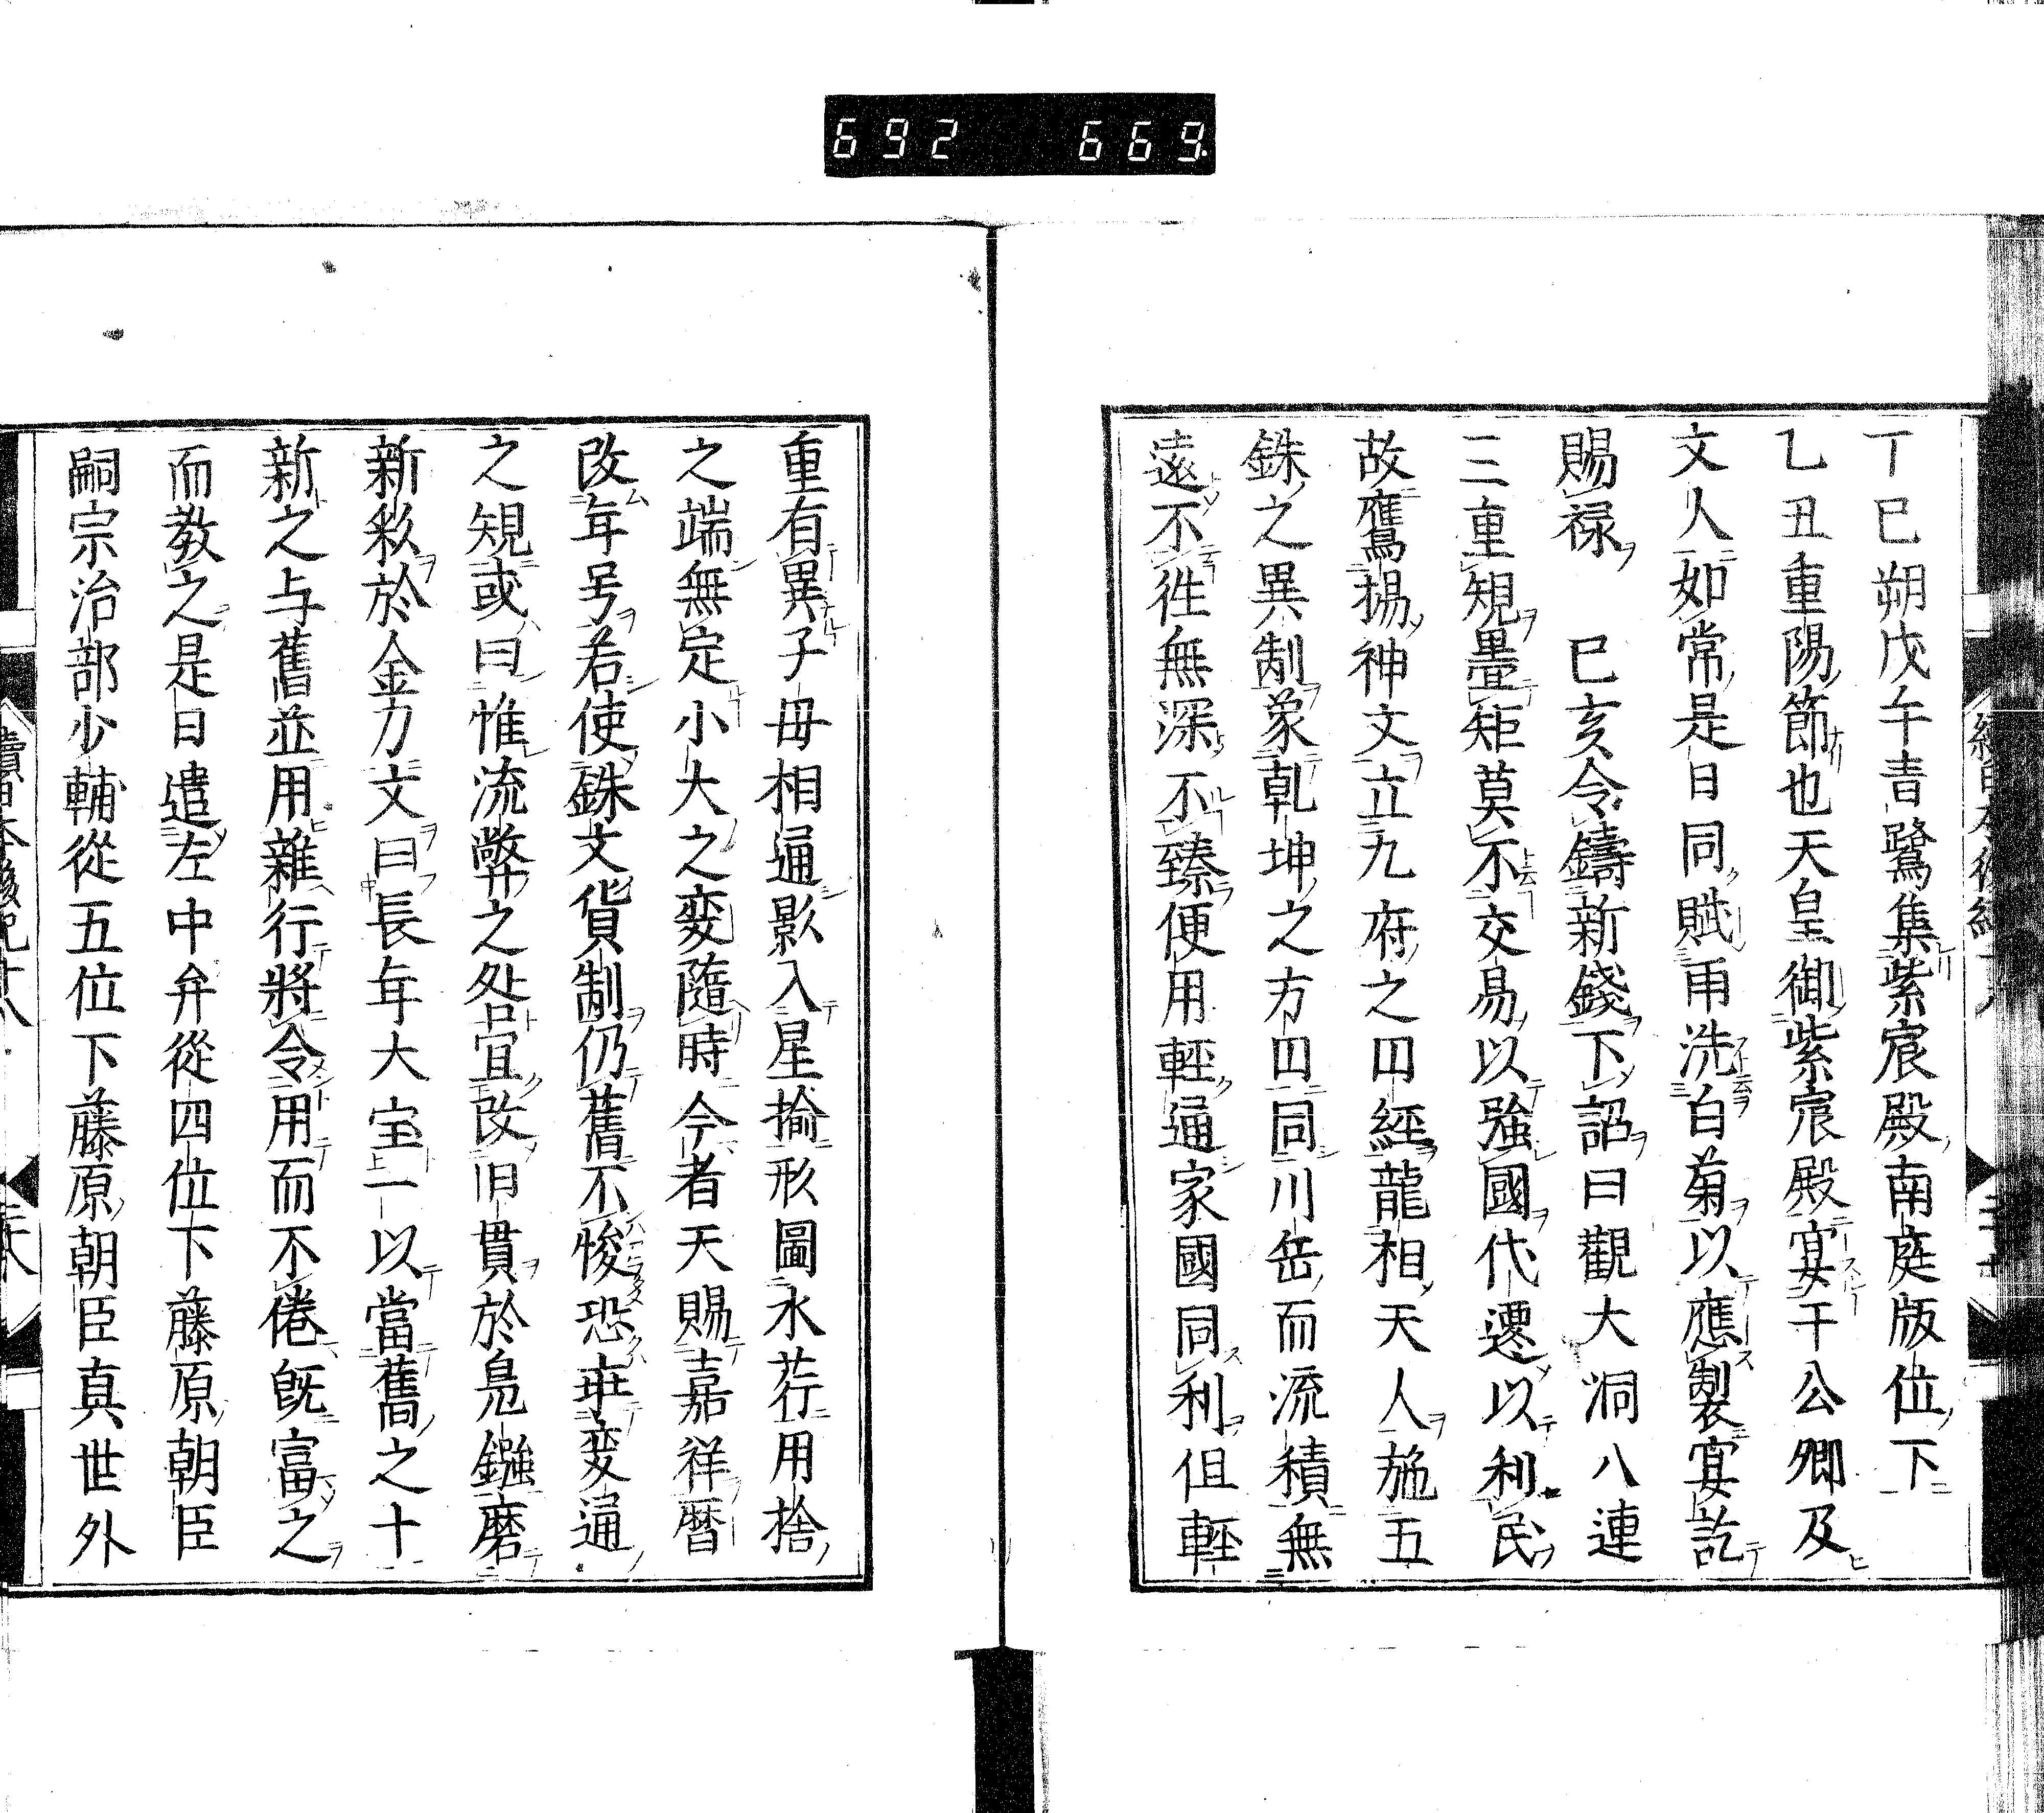 692 669.
丁巳朔戊午青鷺集紫宸殿南庭版位下
乙丑重陽節也天皇御紫宸殿宴于公卿及
文人如常是日同賦雨洗白菊以應製宴訖
賜禄 己亥令鑄新錢下詔曰觀大洞八連
三重規疊矩莫不交易以強國代遷以利民
故鷹揚神文立九府之四經龍相天人施五
銖之異制象乾坤之方四同川岳而流積無
遠不徃無深不臻便用輕通家國同利但輕
重有異子毋相通影入星揄形圖水荇用捨
之端無定小大之変隨時今者天賜嘉祥暦
改年号若使銖文貨制仍舊不悛恐乖変通
之規或曰惟流弊之咎宜改旧貫於是鎔磨
新欵於金刀文曰長年大宝一以當舊之十
新之与舊並用雜行將令用而不倦既富之
而教之是日遣左中弁從四位下藤原朝臣
嗣宗治部少輔從五位下藤原朝臣真世外